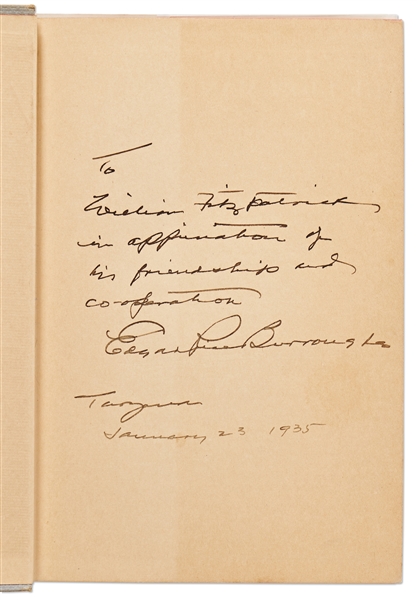 To
William Fitzpatrick
in appreciation of
his friendship and
co-operation
Edgar Rice Burroughs
Tarzana
January 23 1935